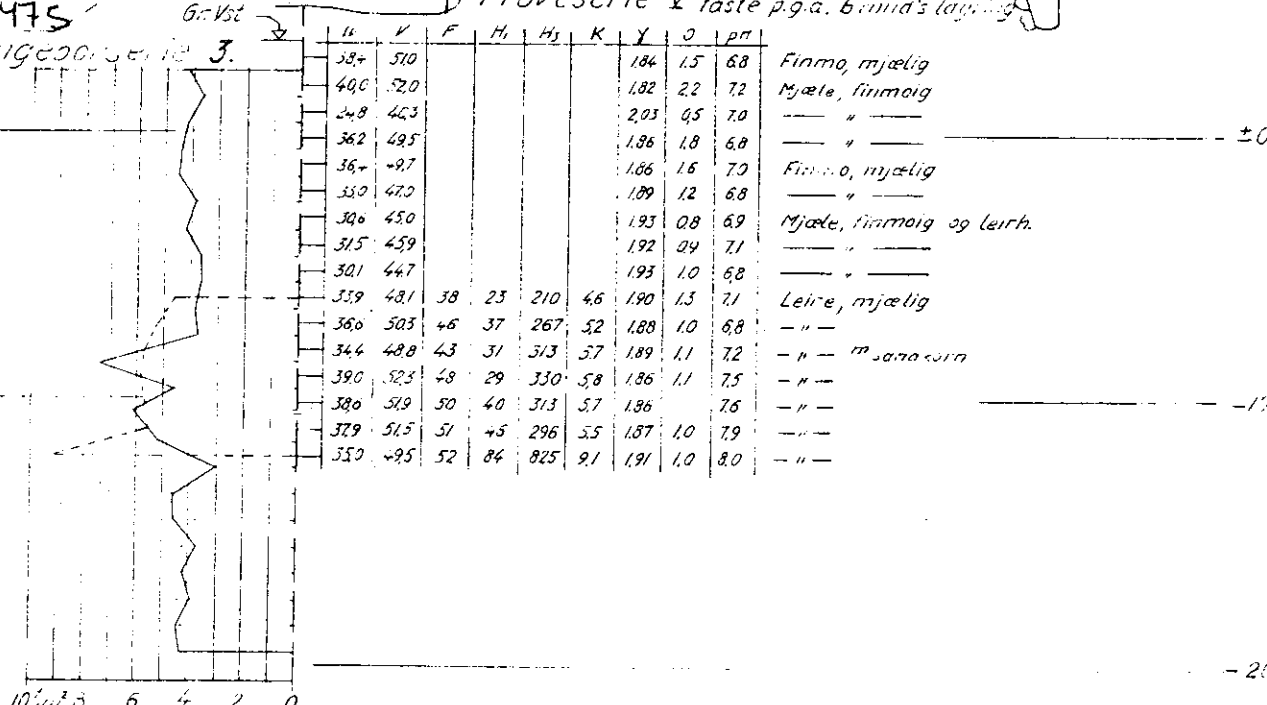 475
Gr.Vst
Prøveserie
p.g.a.
3.
W V F H₁ H₃ K γ O pH
38,4 51,0 1,84 1,5 6,8 Finmo, mjælig
40,0 52,0 1,82 2,2 7,2 Mjæle, finmoig
24,8 46,3 2,03 0,5 7,0 — " —
36,2 49,5 1,86 1,8 6,8 — " — ±0
36,4 49,7 1,86 1,6 7,0 Finmo, mjælig
35,0 47,0 1,89 1,2 6,8 — " —
30,6 45,0 1,93 0,8 6,9 Mjæle, finmoig og leirh.
31,5 45,9 1,92 0,9 7,1 — " —
30,1 44,7 1,93 1,0 6,8 — " —
33,9 48,1 38 23 210 4,6 1,90 1,3 7,1 Leire, mjælig
36,6 50,3 46 37 267 5,2 1,88 1,0 6,8 — " —
34,4 48,8 43 31 313 5,7 1,89 1,1 7,2 — " — m sandkorn
39,0 52,3 48 29 330 5,8 1,86 1,1 7,5 — " —
38,6 51,9 50 40 313 5,7 1,86 7,6 — " —
37,9 51,5 51 45 296 5,5 1,87 1,0 7,9 — " —
35,0 49,5 52 84 825 9,1 1,91 1,0 8,0 — " —
10 8 6 4 2 0